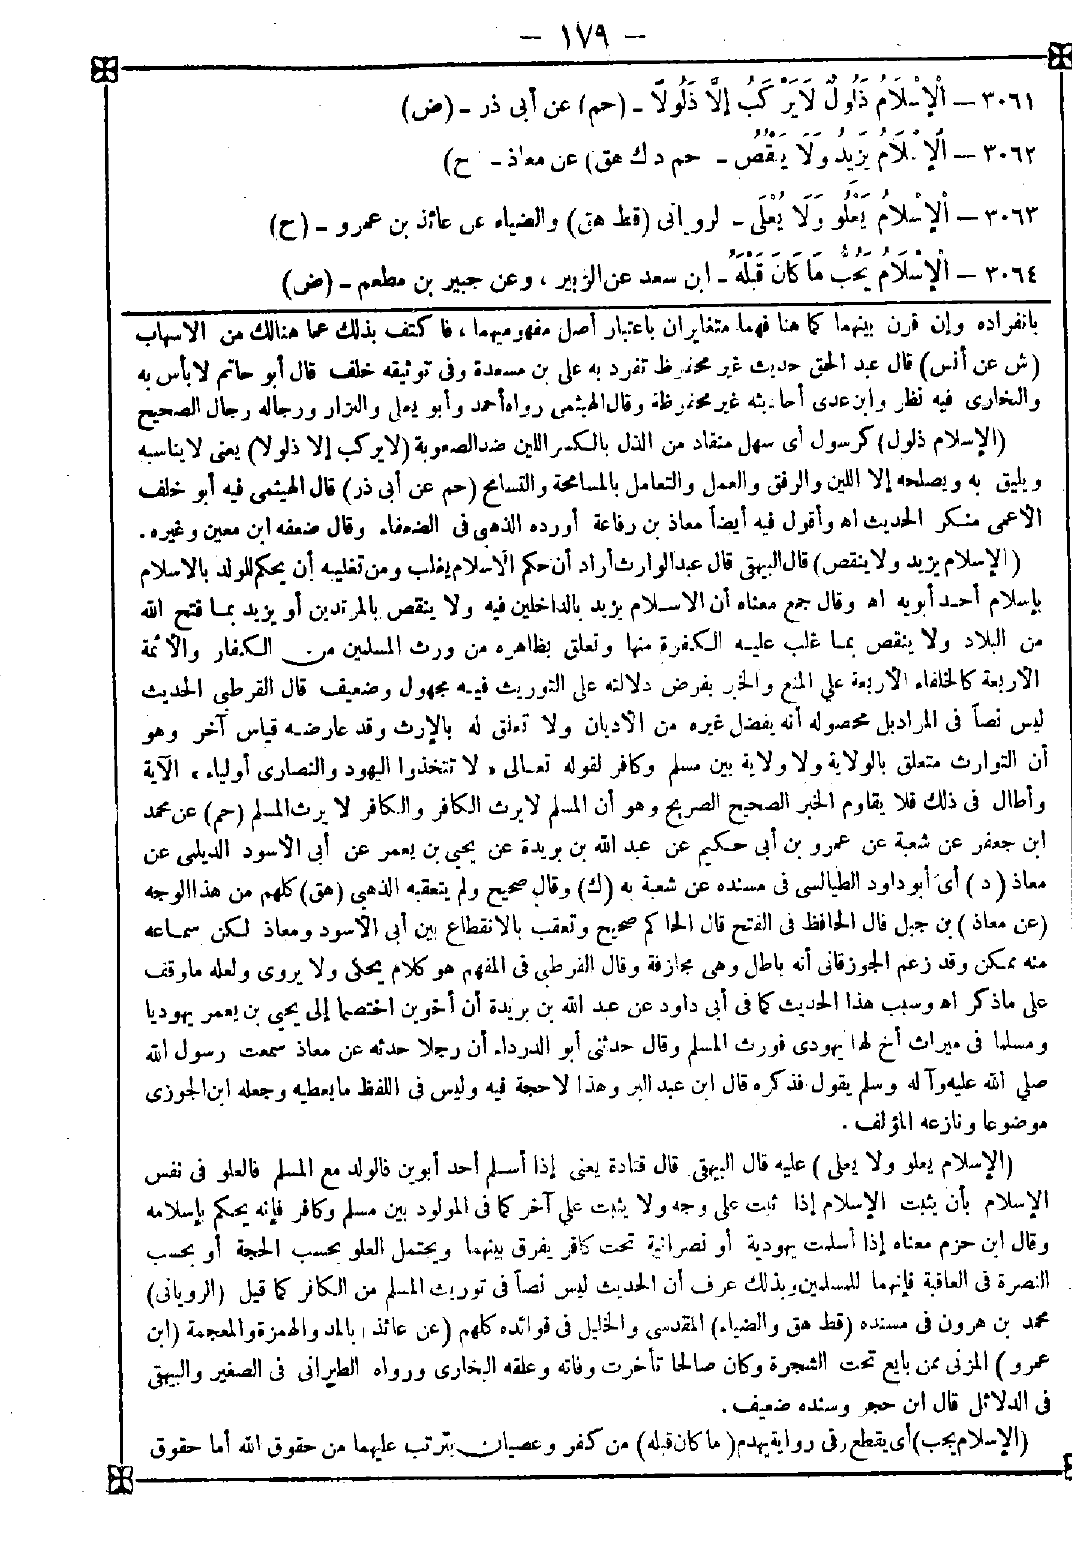 – ١٧٩ –
٣٠٦١ – اَلْإِسْلَامُ ذَلُولٌ لَايَرْكَبُ إِلَّا ذَلُولًا – (حم) عن أبى ذر – (ض)
٣٠٦٢ – اَلْإِسْلَامُ يَزِيدُ وَلَا يَنْقُصُ – حم د ك هق) عن معاذ – ح)
٣٠٦٣ – اَلْإِسْلَامُ يَعْلُو وَلَا يُعْلَى – لرويانى (قط هق) والضياء عن عائذ بن عمرو – (ح)
٣٠٦٤ – اَلْإِسْلَامُ يَجُبُّ مَا كَانَ قَبْلَهُ – ابن سعد عن الزبير ، وعن جبير بن مطعم – (ض)
بانفراده وإن قرن بينهما كما هنا فهما متغايران باعتبار أصل مفهوميهما ، فاكتف بذلك عما هنالك من الاسهاب
(ش عن أنس) قال عبد الحق حديث غير محفوظ تفرد به على بن مسعدة وفى توثيقه خلف قال أبو حاتم لابأس به
والبخارى فيه نظر وابن عدى أحاديثه غير محفوظة وقال الهيثمى رواه أحمد وأبو يعلى والبزار ورجاله رجال الصحيح
(الإسلام ذلول) كرسول أى سهل منقاد من الذل بالكسر اللين ضد الصعوبة (لايركب إلا ذلولا) يعنى لايناسبه
ويليق به ويصلحه إلا اللين والرفق والعمل والتعامل بالمسامحة والتسامح (حم عن أبى ذر) قال الهيثمى فيه أبو خلف
الأعمى منكر الحديث اه وأقول فيه أيضاً معاذ بن رفاعة أورده الذهبى فى الضعفاء وقال ضعفه ابن معين وغيره .
(الإسلام يزيد ولا ينقص) قال البيهقى قال عبد الوارث أراد أن حكم الاسلام يغلب ومن تغليبه أن يحكم للولد بالاسلام
بإسلام أحد أبويه اه وقال جمع معناه أن الاسلام يزيد بالداخلين فيه ولا ينقص بالمرتدين أو يزيد بما فتح الله
من البلاد ولا ينقص بما غلب عليه الكفرة منها وتعلق بظاهره من ورث المسلمين من الكفار والأئمة
الأربعة كالخلفاء الأربعة على المنع والخبر بفرض دلالته على التوريث فيه مجهول وضعيف قال القرطبى الحديث
ليس نصاً فى المراد بل محصوله أنه يفضل غيره من الأديان ولا تعلق له بالإرث وقد عارضه قياس آخر وهو
أن التوارث متعلق بالولاية ولا ولاية بين مسلم وكافر لقوله تعالى « لا تتخذوا اليهود والنصارى أولياء » الآية
وأطال فى ذلك فلا يقاوم الخبر الصحيح الصريح وهو أن المسلم لايرث الكافر والكافر لا يرث المسلم (حم) عن محمد
ابن جعفر عن شعبة عن عمرو بن أبى حكيم عن عبد الله بن بريدة عن يحيى بن يعمر عن أبى الأسود الديلمى عن
معاذ ( د ) أى أبو داود الطيالسى فى مسنده عن شعبة به (ك) وقال صحيح ولم يتعقبه الذهبى (هق) كلهم من هذا الوجه
(عن معاذ ) بن جبل قال الحافظ فى الفتح قال الحاكم صحيح وتعقب بالانقطاع بين أبى الأسود ومعاذ لكن سماعه
منه ممكن وقد زعم الجوزقانى أنه باطل وهى مجازفة وقال القرطبى فى المفهم هو كلام يحكى ولا يروى ولعله ماوقف
على ماذكر اه وسبب هذا الحديث كما فى أبى داود عن عبد الله بن بريدة أن أخوين اختصما إلى يحيى بن يعمر يهوديا
ومسلما فى ميراث أخ لهما يهودى فورث المسلم وقال حدثنى أبو الدرداء أن رجلا حدثه عن معاذ سمعت رسول الله
صلى الله عليه وآله وسلم يقول فذكره قال ابن عبد البر وهذا لاحجة فيه وليس فى اللفظ مايعطيه وجعله ابن الجوزى
موضوعا ونازعه المؤلف .
(الإسلام يعلو ولا يعلى ) عليه قال البيهقى قال قتادة يعنى إذا أسلم أحد أبوين فالولد مع المسلم فالعلو فى نفس
الإسلام بأن يثبت الإسلام إذا ثبت على وجه ولا يثبت على آخر كما فى المولود بين مسلم وكافر فإنه يحكم بإسلامه
وقال ابن حزم معناه إذا أسلمت يهودية أو نصرانية تحت كافر يفرق بينهما ويحتمل العلو بحسب الحجة أو بحسب
النصرة فى العاقبة فإنهما للمسلمين وبذلك عرف أن الحديث ليس نصاً فى توريث المسلم من الكافر كما قيل (الرويانى)
محمد بن هرون فى مسنده (قط هق والضياء) المقدسى والخليل فى فوائده كلهم (عن عائذ) بالمد والهمزة والمعجمة (ابن
عمرو) المزنى ممن بايع تحت الشجرة وكان صالحا تأخرت وفاته وعلقه البخارى ورواه الطبرانى فى الصغير والبيهقى
فى الدلائل قال ابن حجر وسنده ضعيف .
(الإسلام يجب) أى يقطع وفى رواية يهدم (ما كان قبله) من كفر وعصيان يترتب عليهما من حقوق الله أما حقوق